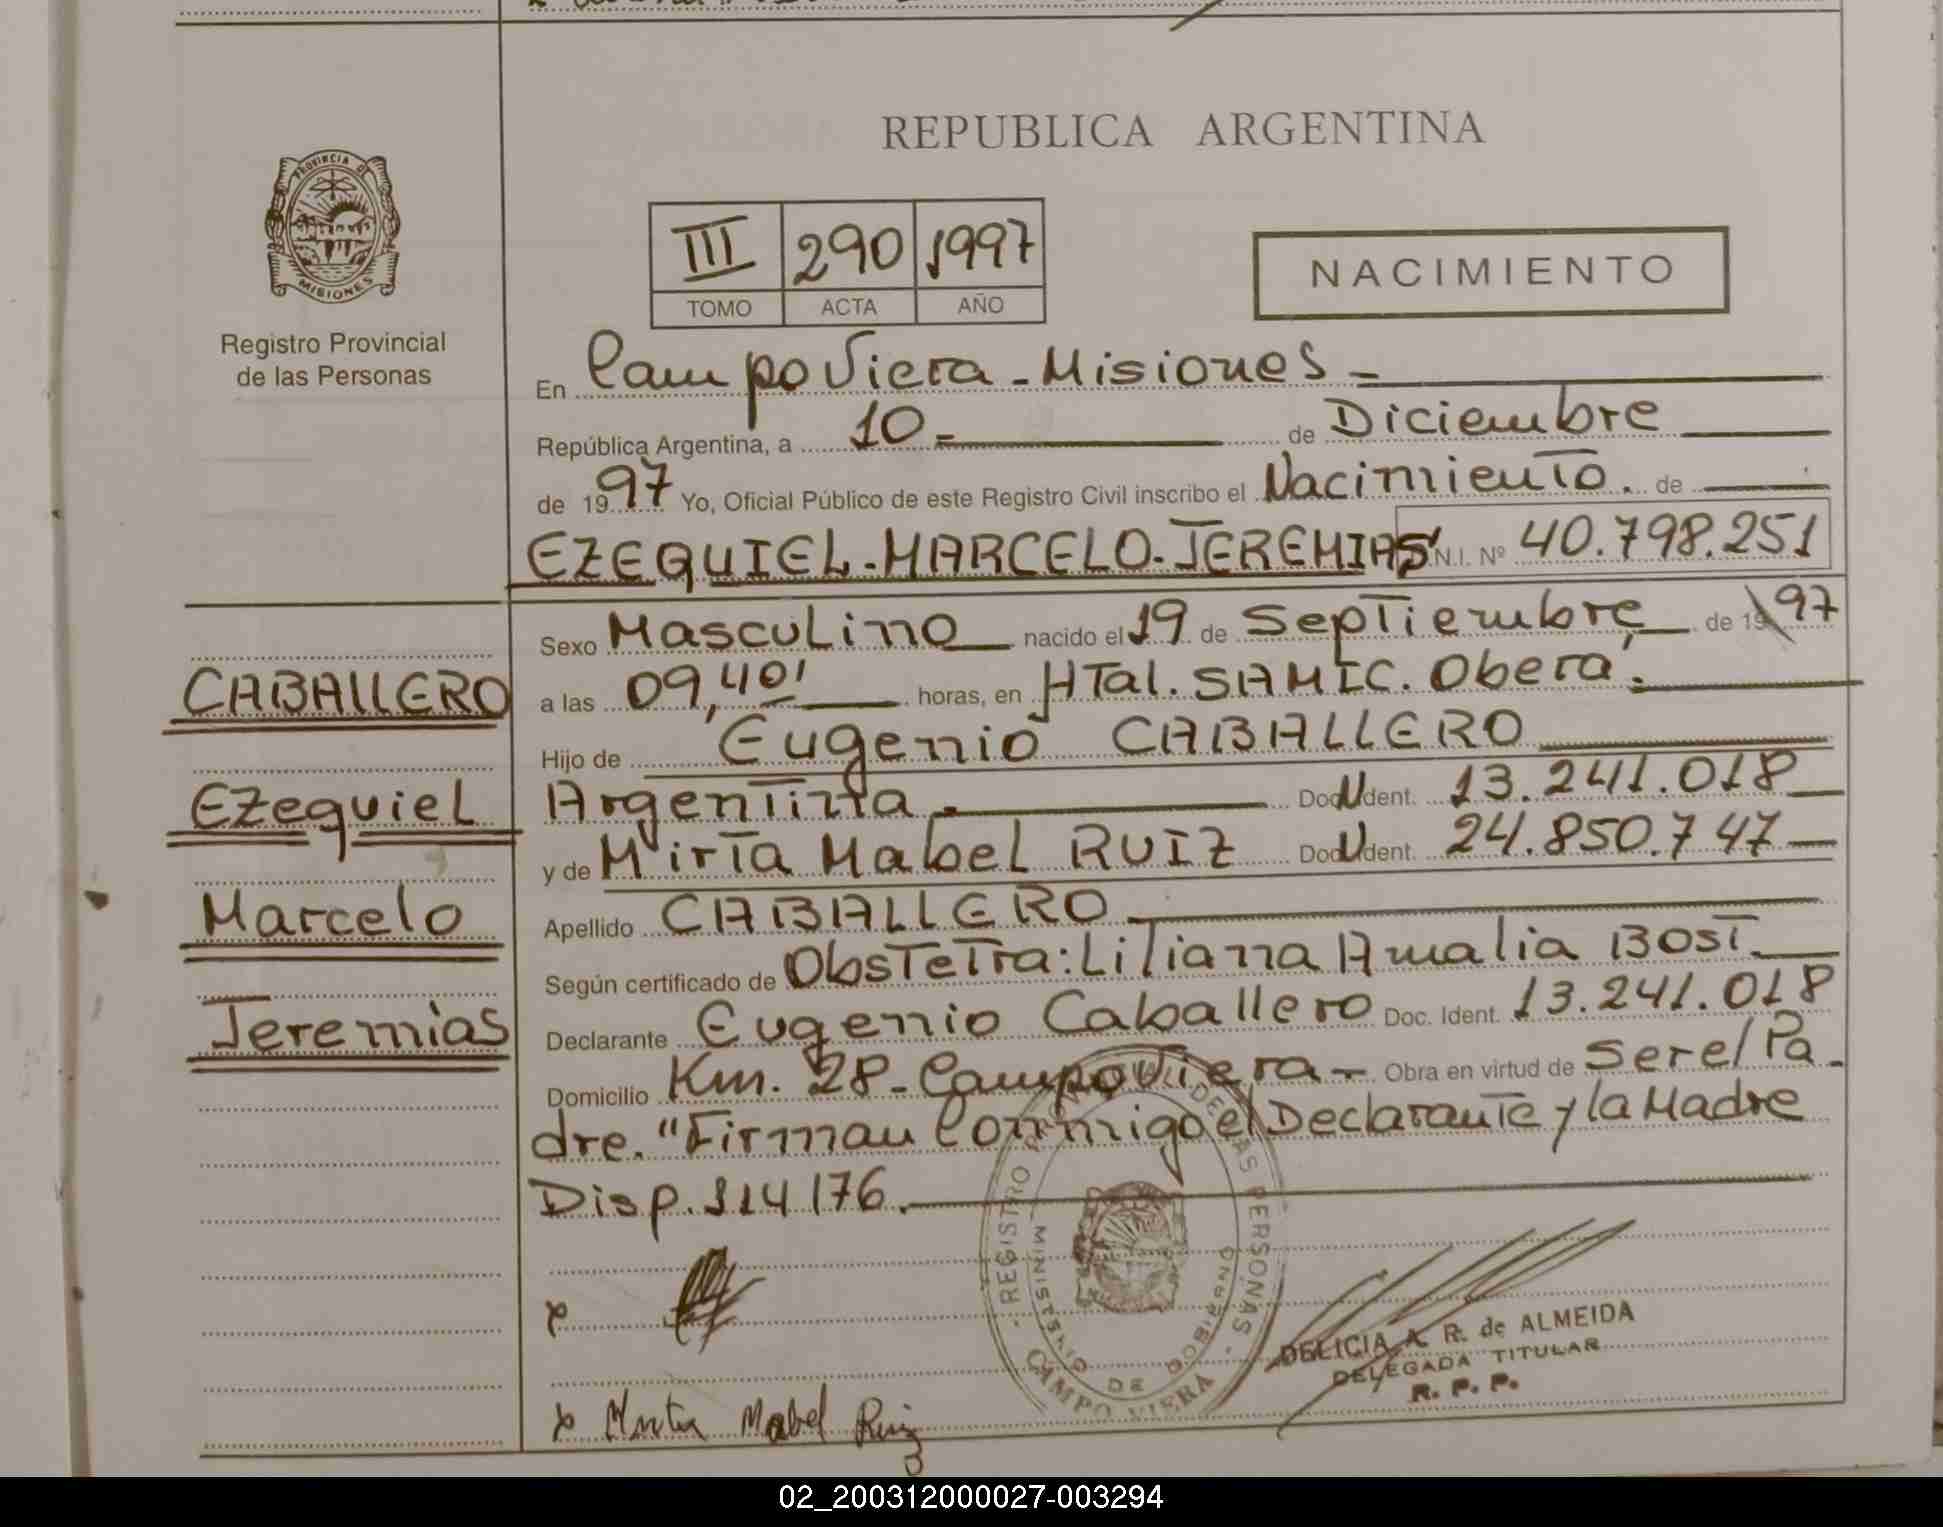 REPUBLICA ARGENTINA
PROVINCIA DE
MISIONES
Registro Provincial
de las Personas
III 290 1997
TOMO ACTA AÑO
NACIMIENTO
En Campo Viera - Misiones -
República Argentina, a 10 - de Diciembre
de 1997 Yo, Oficial Público de este Registro Civil inscribo el Nacimiento. de
EZEQUIEL-MARCELO-JEREMIAS N.I. Nº 40.798.251
CABALLERO
Ezequiel
Marcelo
Jeremias
Sexo Masculino nacido el 19 de Septiembre de 19 97
a las 09,40' horas, en HTal. SAMIC. Oberá.
Hijo de Eugenio CABALLERO
Argentina. Doc. Ident. 13.241.018
y de Mirta Mabel RUIZ Doc. Ident. 24.850.747
Apellido CABALLERO
Según certificado de Obstetra: Liliana Amalia BOST
Declarante Eugenio Caballero Doc. Ident. 13.241.018
Domicilio Km. 28 - Campo Viera - Obra en virtud de ser el Pa-
dre. "Firman Conmigo el Declarante y la Madre
Disp. 114/76.
REGISTRO PROVINCIAL DE LAS PERSONAS
MINISTERIO DE GOBIERNO
CAMPO VIERA
DELICIA A. R. de ALMEIDA
DELEGADA TITULAR
R. P. P.
x
x Mirta Mabel Ruiz
02_200312000027-003294